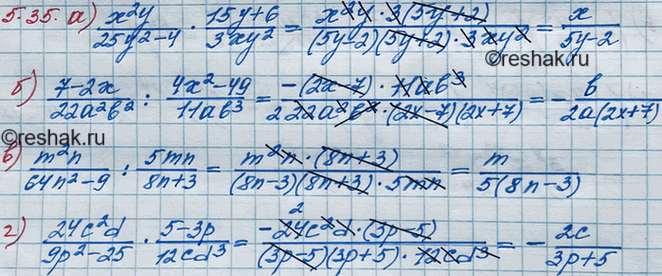 5.35. а) x²y/(25y²-4) · (15y+6)/(3xy²) = (x²y · 3(5y+2))/((5y-2)(5y+2) · 3xy²) = x/(5y-2)
б) (7-2x)/(22a²b²) : (4x²-49)/(11ab³) = (-(2x-7) · 11ab³)/(2 22a²b² · (2x-7)(2x+7)) = -b/(2a(2x+7))
reshak.ru
reshak.ru
в) m²n/(64n²-9) : 5mn/(8n+3) = (m²n · (8n+3))/((8n-3)(8n+3) · 5mn) = m/(5(8n-3))
г) 24c²d/(9p²-25) · (5-3p)/(12cd³) = (-2 24c²d · (3p-5))/((3p-5)(3p+5) · 12cd³) = -2c/(3p+5)
reshak.ru